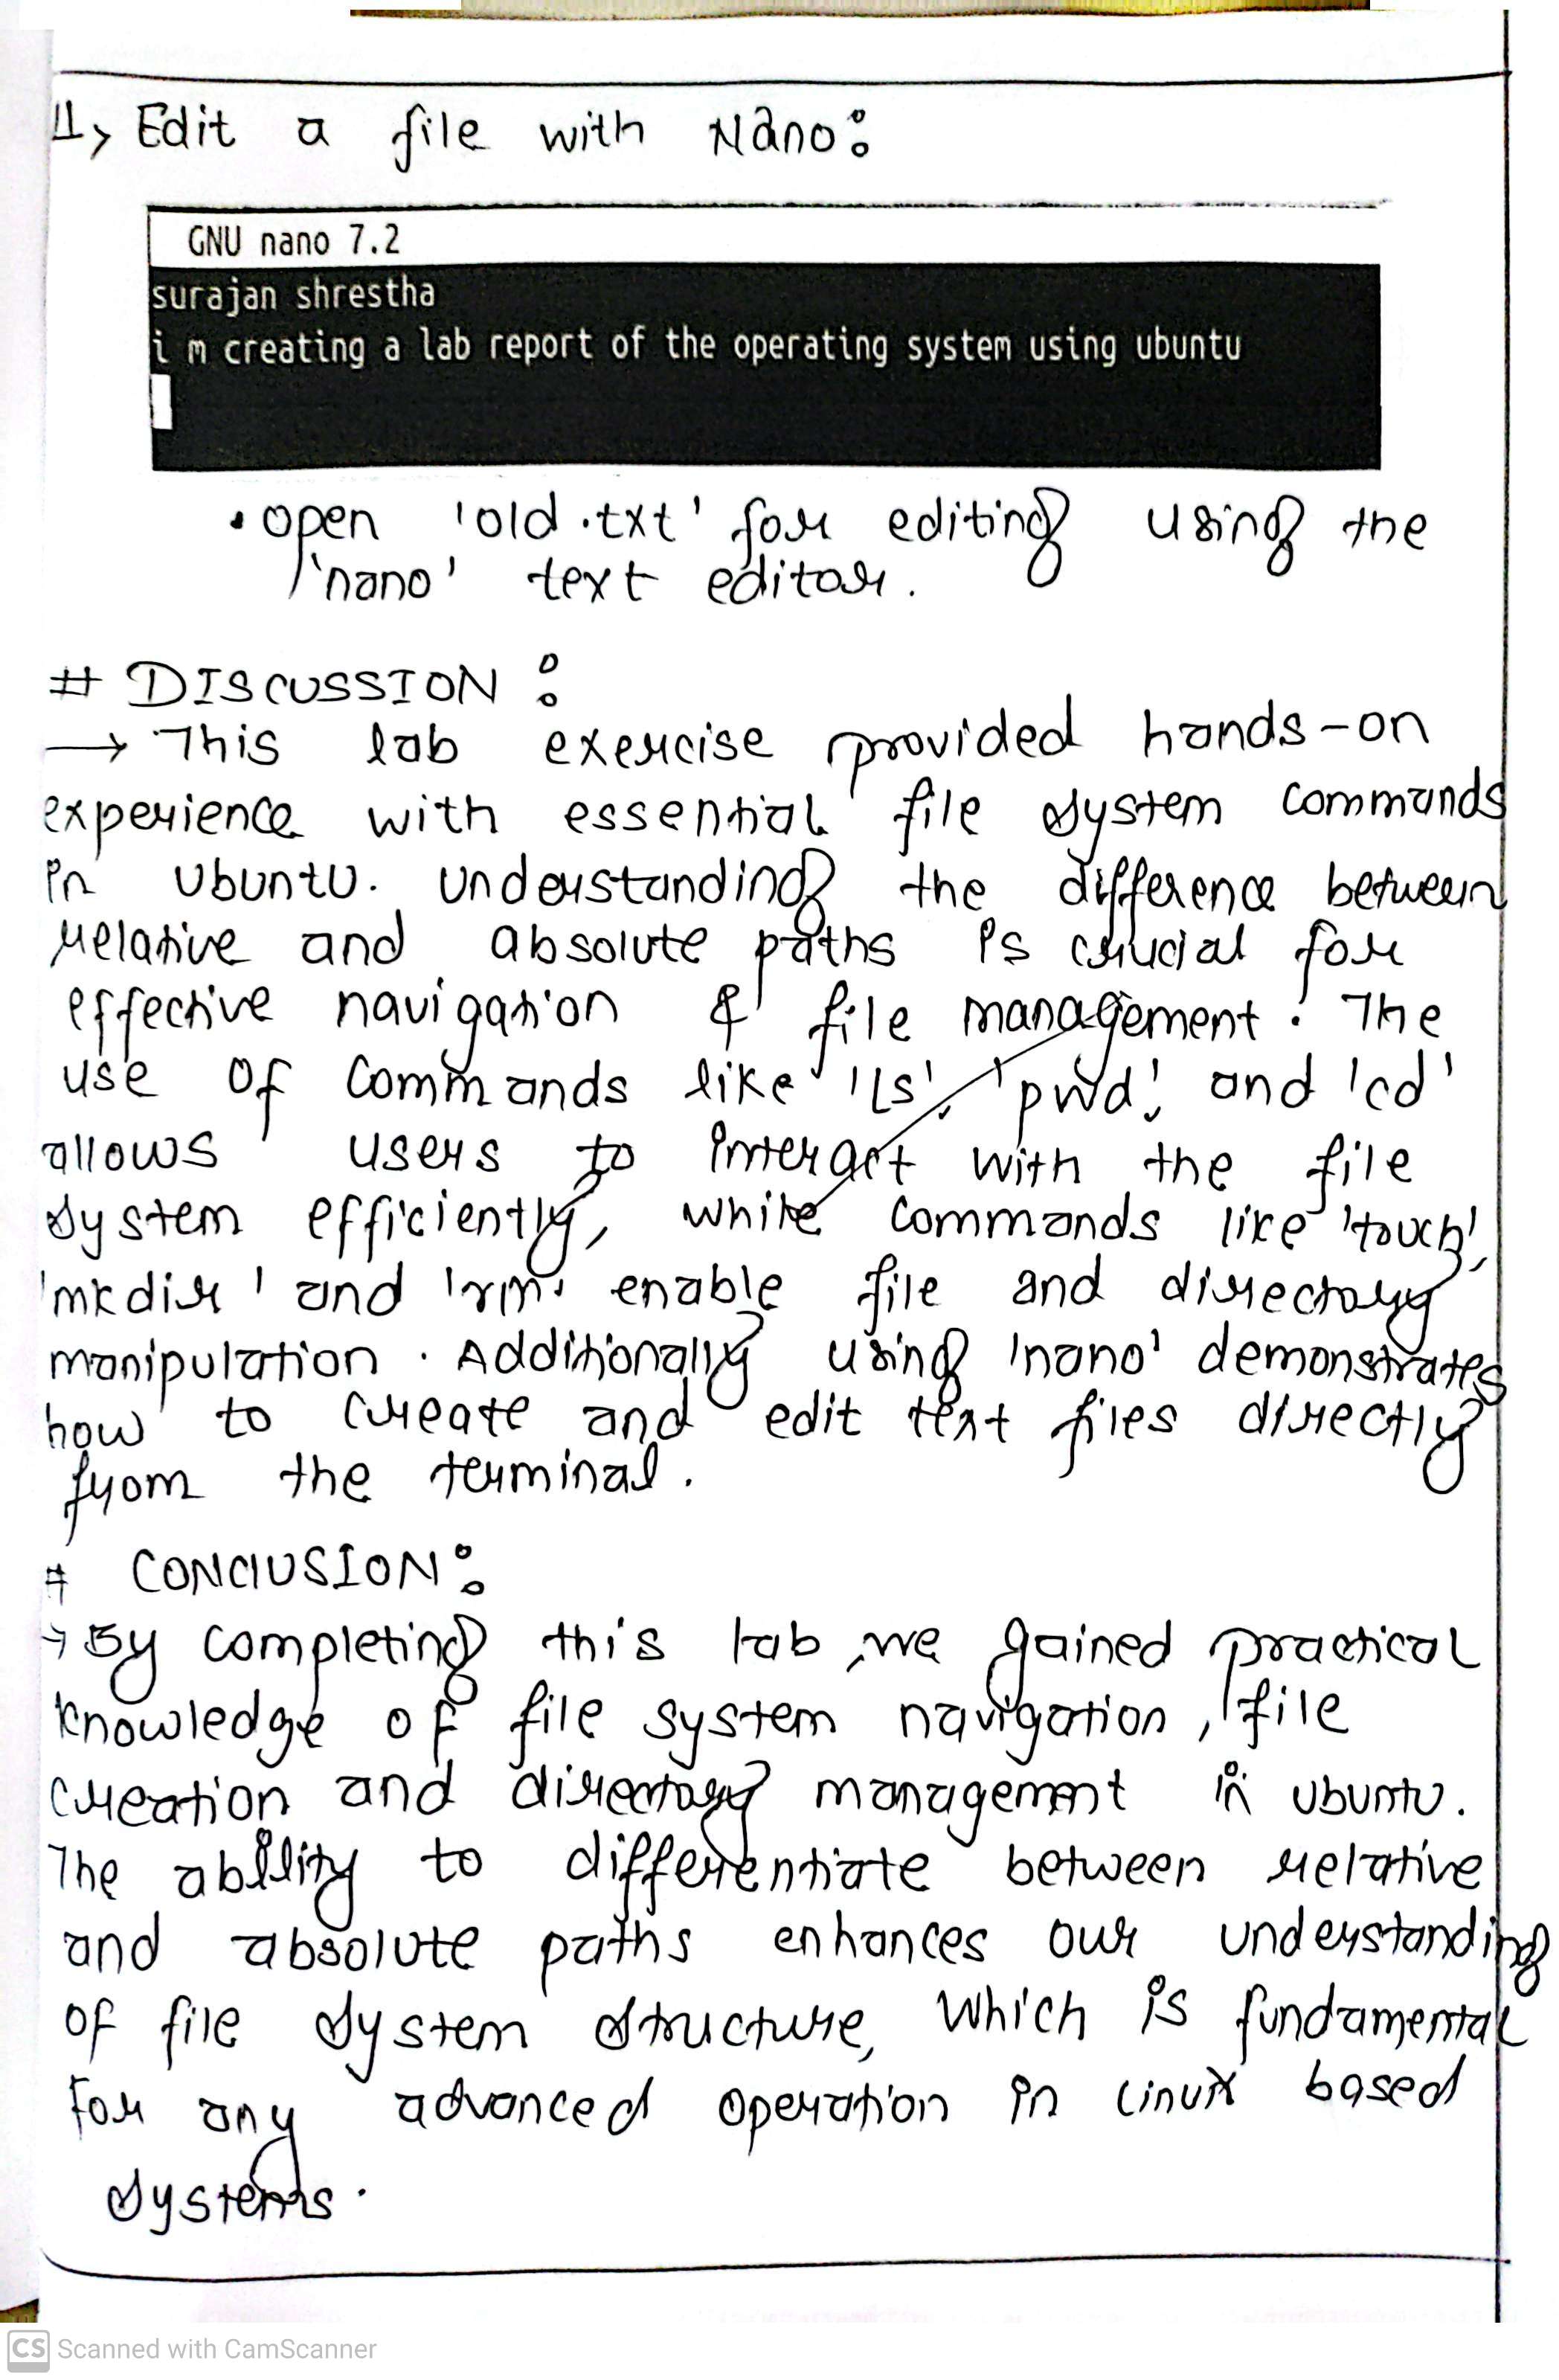 11> Edit a file with Nano:
GNU nano 7.2
surajan shrestha
i m creating a lab report of the operating system using ubuntu
• open 'old.txt' for editing using the
'nano' text editor.
# DISCUSSION :
→ This lab exercise provided hands-on
experience with essential file system commands
in Ubuntu. Understanding the difference between
relative and absolute paths is crucial for
effective navigation & file management. The
use of commands like 'ls', 'pwd', and 'cd'
allows users to interact with the file
system efficiently, while commands like 'touch',
'mkdir' and 'rm' enable file and directory
manipulation. Additionally using 'nano' demonstrates
how to create and edit text files directly
from the terminal.
# CONCLUSION:
→ By completing this lab, we gained practical
knowledge of file system navigation, file
creation and directory management in Ubuntu.
The ability to differentiate between relative
and absolute paths enhances our understanding
of file system structure, which is fundamental
for any advanced operation in Linux based
systems.
CS Scanned with CamScanner